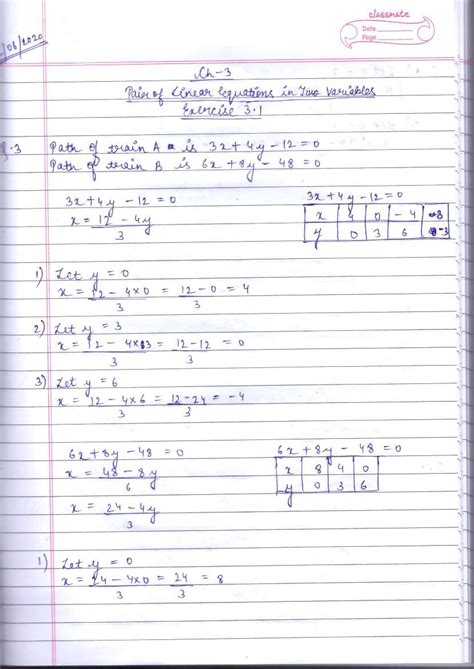 classmate
Date
Page
/06/2020
Ch-3
Pair of Linear Equations in Two Variables
Exercise 3.1
Q.3 Path of train A is 3x+4y-12=0
Path of train B is 6x+8y-48=0
3x+4y-12=0
x = 12-4y/3
3x+4y-12=0
x 4 0 -4 8
y 0 3 6 -3
1) Let y = 0
x = 12-4×0/3 = 12-0/3 = 4
2) Let y = 3
x = 12-4×3/3 = 12-12/3 = 0
3) Let y = 6
x = 12-4×6/3 = 12-24/3 = -4
6x+8y-48=0
x = 48-8y/6
x = 24-4y/3
6x+8y-48=0
x 8 4 0
y 0 3 6
1) Let y = 0
x = 24-4×0/3 = 24/3 = 8